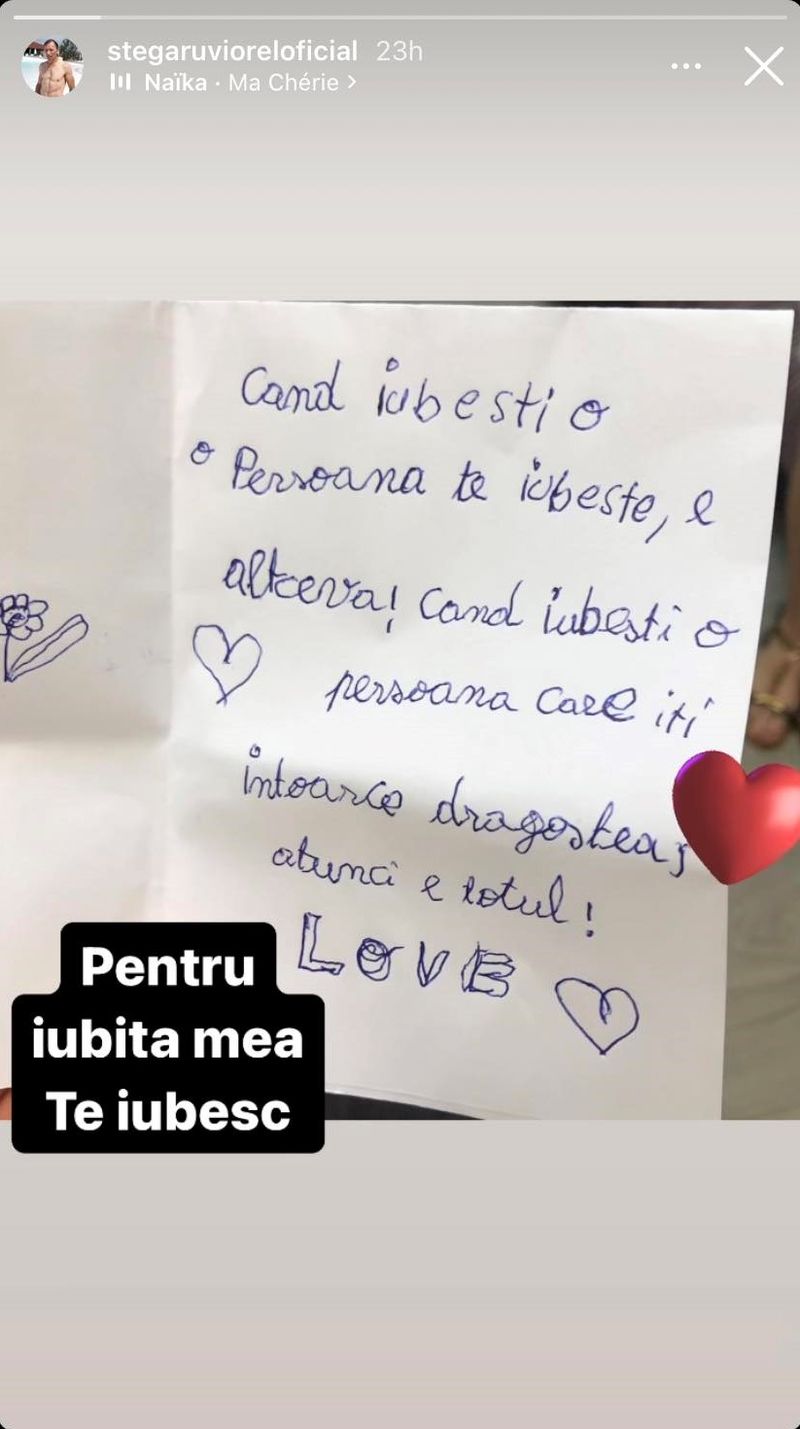 stegaruvioreloficial 23h
Naïka · Ma Chérie >
Cand iubesti o
o Persoana te iubeste, e
altceva! Cand iubesti o
persoana care iti
intoarce dragostea,
atunci e totul!
LOVE
Pentru
iubita mea
Te iubesc